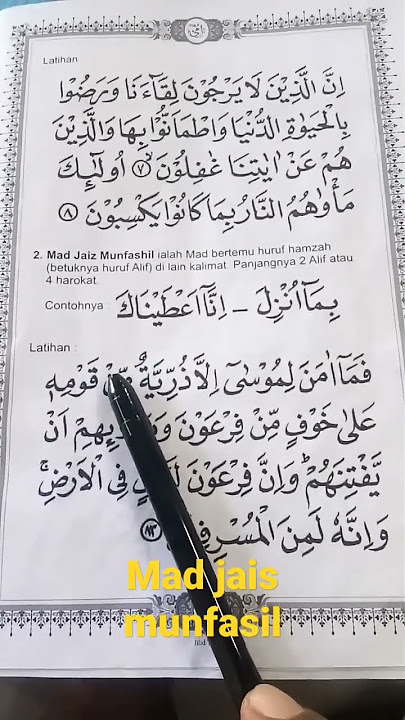 Latihan
اِنَّ الَّذِيْنَ لَا يَرْجُوْنَ لِقَآءَنَا وَرَضُوْا
بِالْحَيٰوةِ الدُّنْيَا وَاطْمَاَنُّوْا بِهَا وَالَّذِيْنَ
هُمْ عَنْ اٰيٰتِنَا غٰفِلُوْنَ ۙ ٧ اُولٰٓئِكَ
مَأْوٰىهُمُ النَّارُ بِمَا كَانُوْا يَكْسِبُوْنَ ٨
2. Mad Jaiz Munfashil ialah Mad bertemu huruf hamzah
(betuknya huruf Alif) di lain kalimat. Panjangnya 2 Alif atau
4 harokat.
Contohnya : بِمَآ اُنْزِلَ – اِنَّآ اَعْطَيْنَاكَ
Latihan :
فَمَآ اٰمَنَ لِمُوْسٰىٓ اِلَّا ذُرِّيَّةٌ مِّنْ قَوْمِهٖ
عَلٰى خَوْفٍ مِّنْ فِرْعَوْنَ اَنْ
يَّفْتِنَهُمْ ۗ وَاِنَّ فِرْعَوْنَ فِى الْاَرْضِ ۚ
وَاِنَّهٗ لَمِنَ ٨٣
Mad jais
munfasil